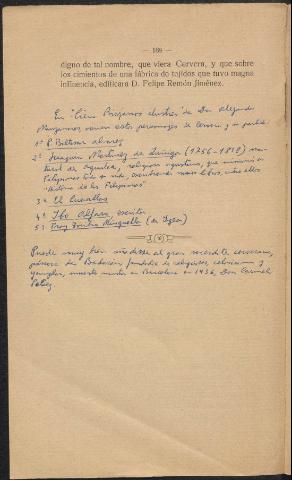 — 169 —
digno de tal nombre, que viera Cervera, y que sobre
los cimientos de una fábrica de tejidos que tuvo magna
influencia, edificara D. Felipe Remón Jiménez.
En "Cien Riojanos ilustres" de Don Alejandro
vienen estos personajes de Cervera, y su partido
1º P. Baltasar Alvarez
2º Joaquin Martinez de Zuñiga (1756-1818)
de Aguilar, religioso agustino, que
Filipinas toda su vida, escribiendo varios libros, entre ellos
"Historia de las Filipinas"
3º El Zurcallos
4º Ibo Alfaro escritor
5º Fray Minguella (de Igea)
Puede muy bien añadirse al gran cerverano,
de religiosas, y
ejemplar, muerto en Barcelona en 1936, Don Carmelo